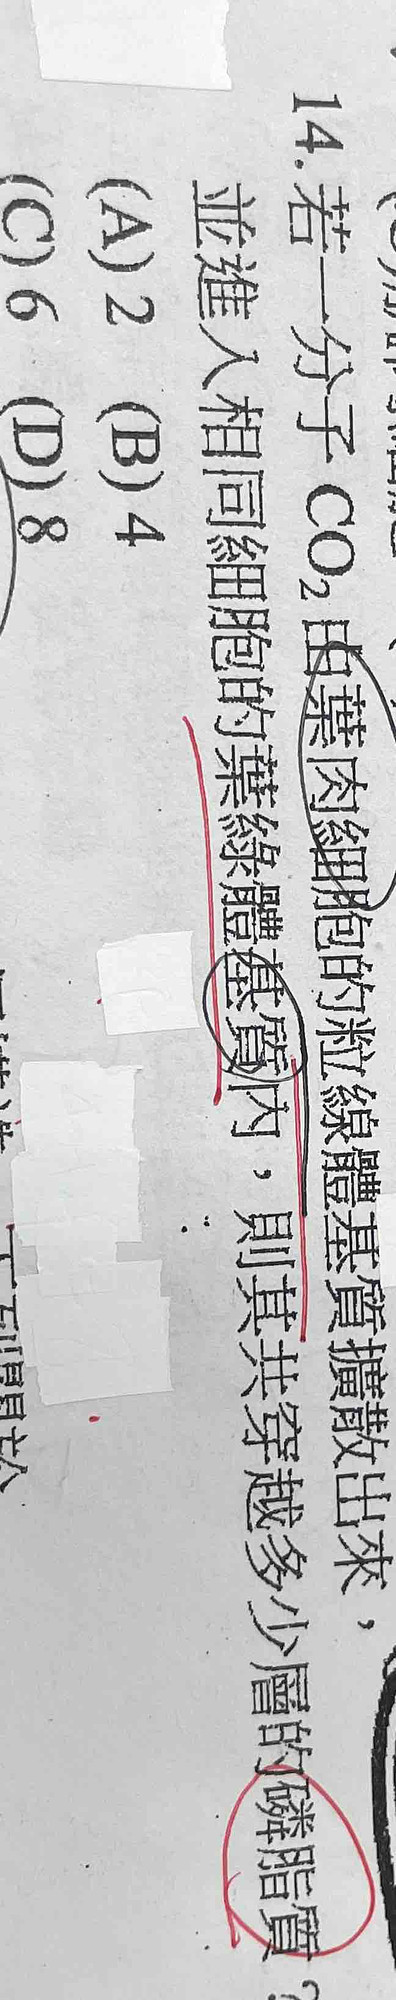 14. 若一分子 CO₂ 由葉肉細胞的粒線體基質擴散出來，
並進入相同細胞的葉綠體基質內，則其共穿越多少層的磷脂質？
(A) 2 (B) 4
(C) 6 (D) 8
下列關於